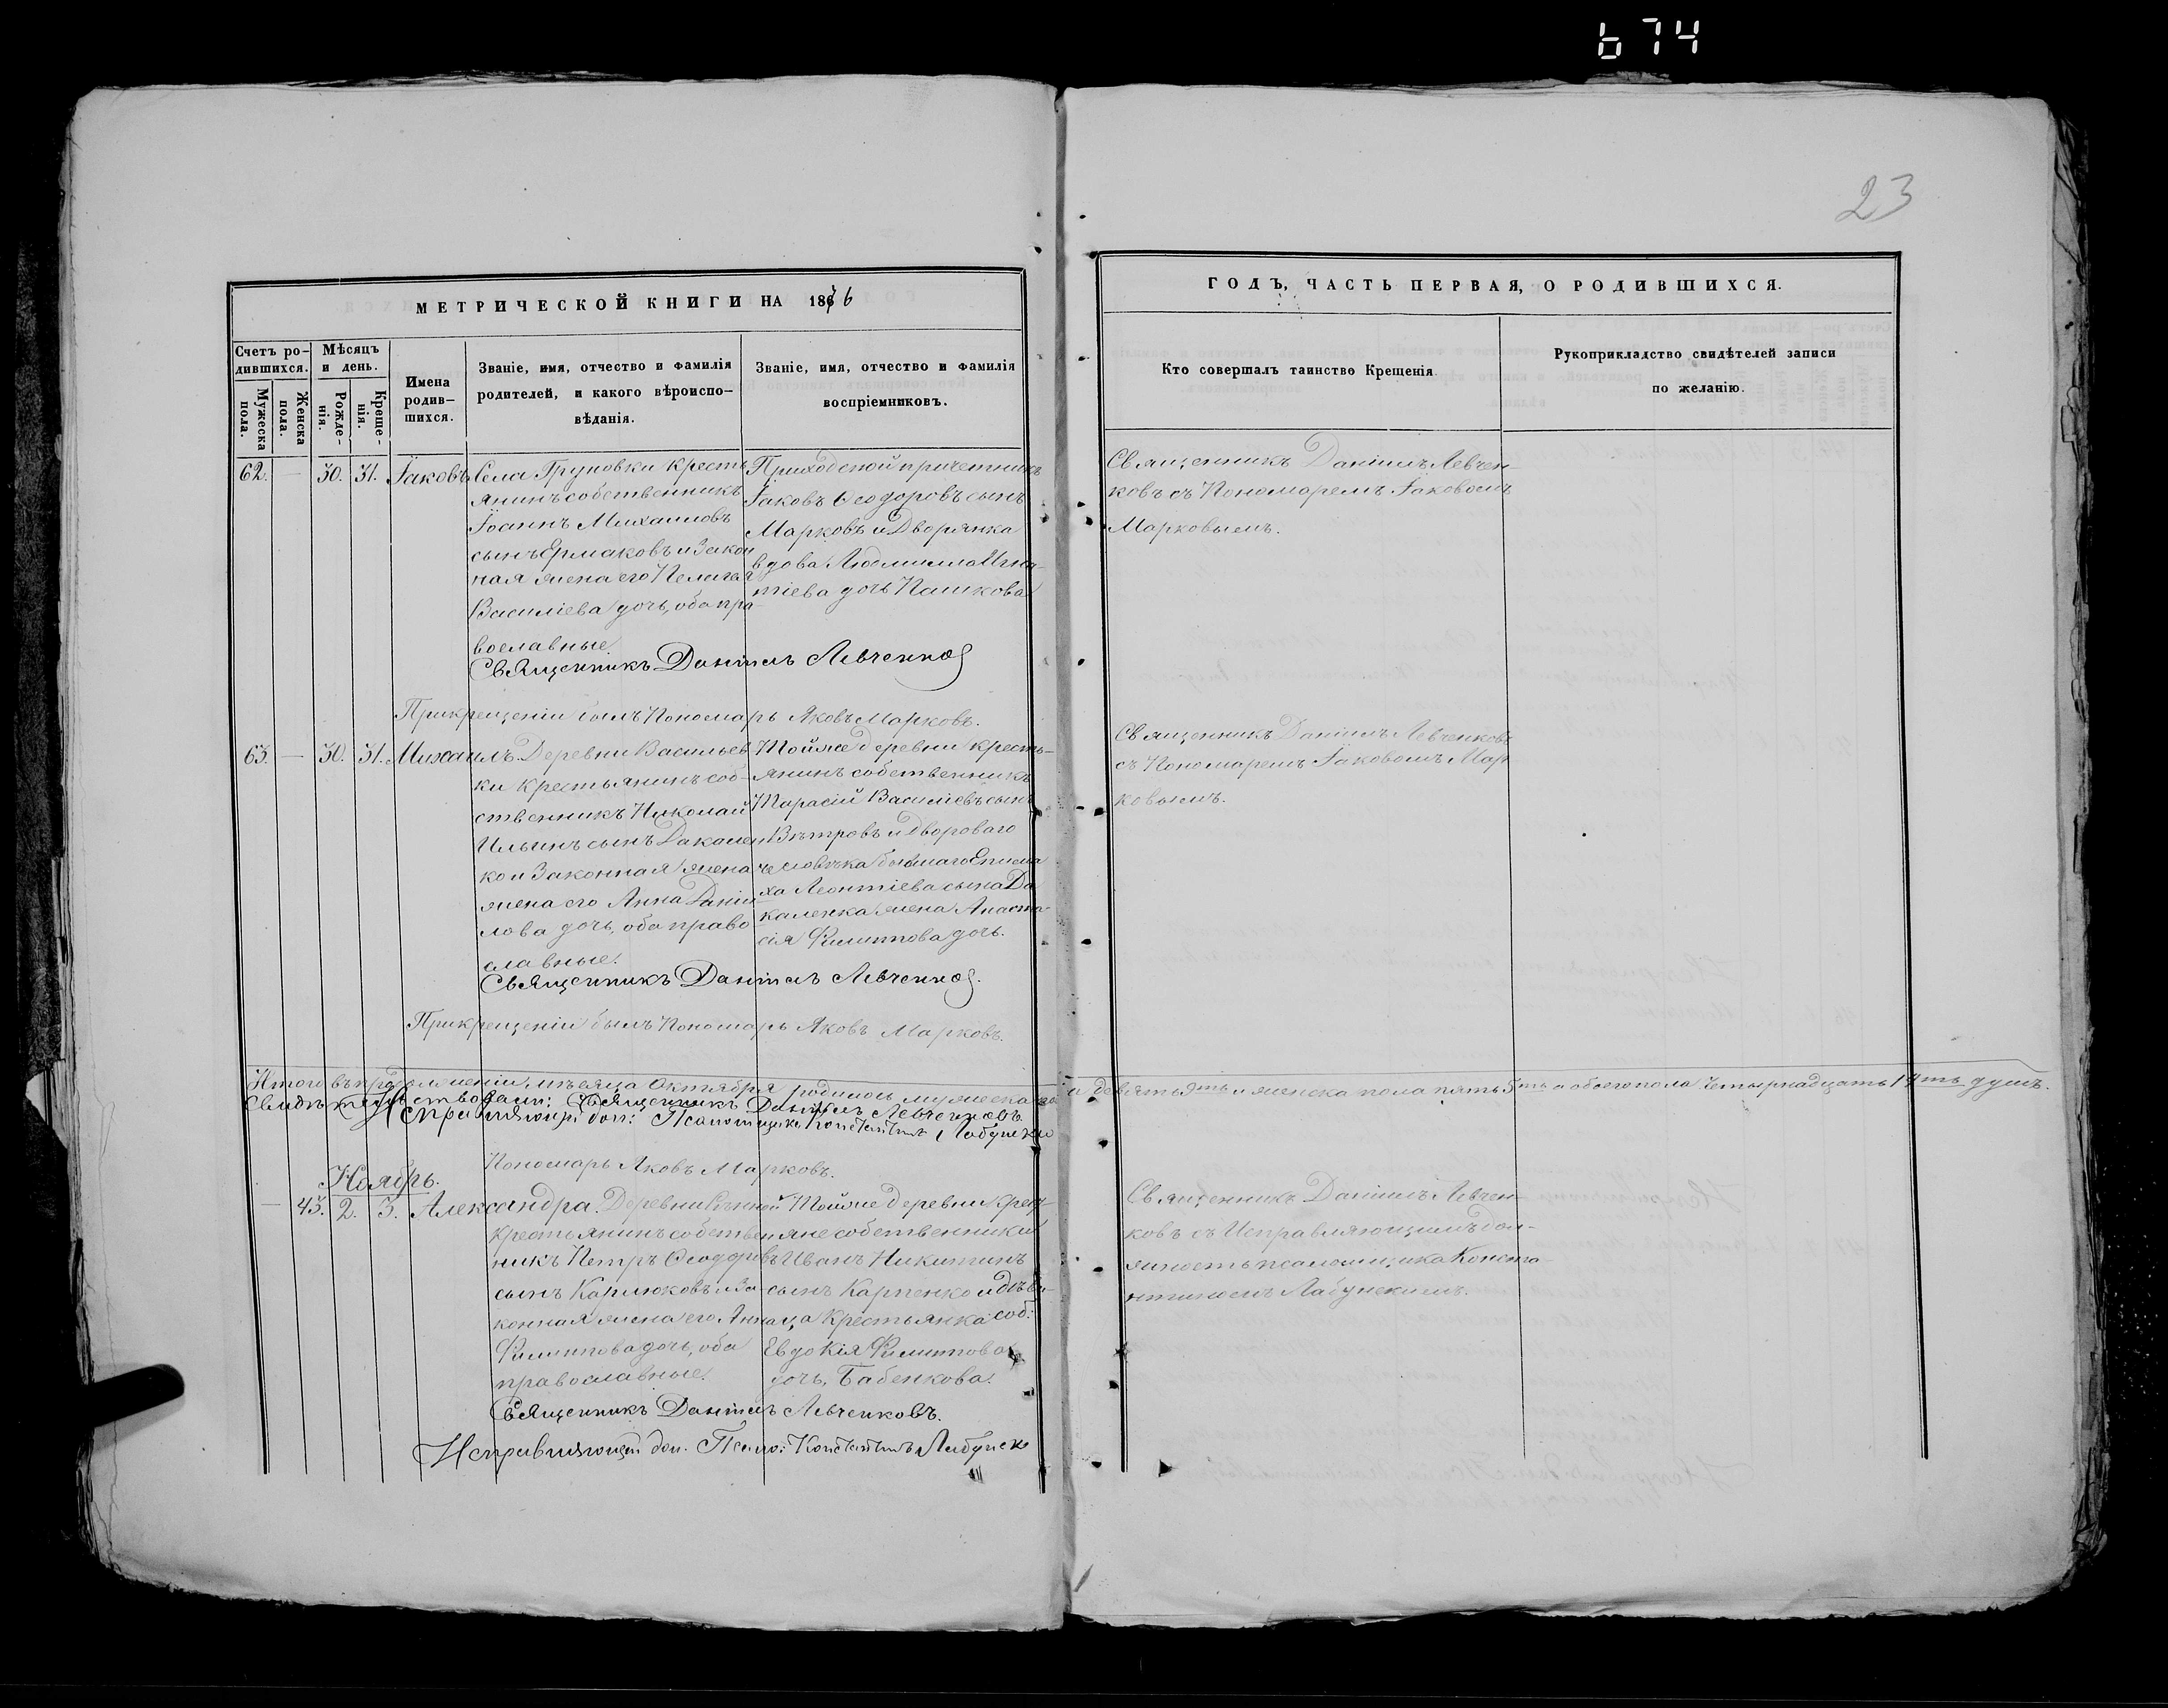 674
23
МЕТРИЧЕСКОЙ КНИГИ НА 1876
ГОДЪ, ЧАСТЬ ПЕРВАЯ, О РОДИВШИХСЯ.
Счетъ ро-
дившихся.
Мужеска пола.
Женска пола.
Мѣсяцъ
и день.
Рожде-
нія.
Креще-
нія.
Имена
родив-
шихся.
Званіе, имя, отчество и фамилія
родителей, и какого вѣроиспо-
вѣданія.
Званіе, имя, отчество и фамилія
воспріемниковъ.
Кто совершалъ таинство Крещенія.
Рукоприкладство свидѣтелей записи
по желанію.
62. — 30. 31. Іаковъ
Села Груновки кресть
янинъ собственникъ
Іоаннъ Михаиловъ
сынъ Ермаковъ и закон
ная жена его Пелагея
Василіева дочь, оба пра-
вославные.
Приходской причетникъ
Іаковъ Ѳеодоровъ сынъ
Марковъ и Дворянка
вдова Людмилла Игна-
тіева дочь Пашкова
Священникъ Даніилъ Левчен-
ковъ съ Пономаремъ Іаковомъ
Марковымъ.
Священникъ Даніилъ Левченков
Прикрещеніи былъ Пономарь Яковъ Марковъ.
63. — 30. 31. Михаилъ.
Деревни Васильев
ки крестьянинъ соб-
ственникъ Николай
Ильинъ сынъ Дакален
ко и законная жена
жена его Анна Даніи-
лова дочь, оба право
славные.
Тойже деревни кресть-
янинъ собственникъ
Тарасій Василіевъ сынъ
Вѣтровъ и двороваго
человѣка бывшаго Епима
ха Леонтіева сына Да
каленка жена Анаста-
сія Филиппова дочь.
Священникъ Даніилъ Левченковъ
съ Пономаремъ Іаковомъ Мар
ковымъ.
Священникъ Даніилъ Левченков.
Прикрещеніи былъ Пономарь Яковъ Марковъ.
Итого въ продолженіи мѣсяца Октября родилось мужеска пола девять 9ть и женска пола пять 5ть а обоего пола четырнадцать 14ть душъ.
Свидѣтельствовали: Священникъ Даніилъ Левченковъ
Исправляющ: дол: Псаломщика Константинъ Лабунскій
Пономарь Яковъ Марковъ.
Ноябрь.
— 43. 2. 3. Александра.
Деревни
крестьянинъ собствен
никъ Петръ Ѳеодоровъ
сынъ Карлюковъ и за-
конная жена его Анна
Филиппова дочь, оба
православные.
Тойже деревни крест-
яне собственники
Иванъ Никитинъ
сынъ Карпенко и дѣви-
ца крестьянка соб:
Евдокія Филиппова
дочь, Бабенкова.
Священникъ Даніилъ Левчен-
ковъ съ Исправляющимъ дол-
жность псаломщика Конста-
нтиномъ Лабунскимъ.
Священникъ Даніилъ Левченковъ.
Исправляющій дол. Псало: Константинъ Лабунск